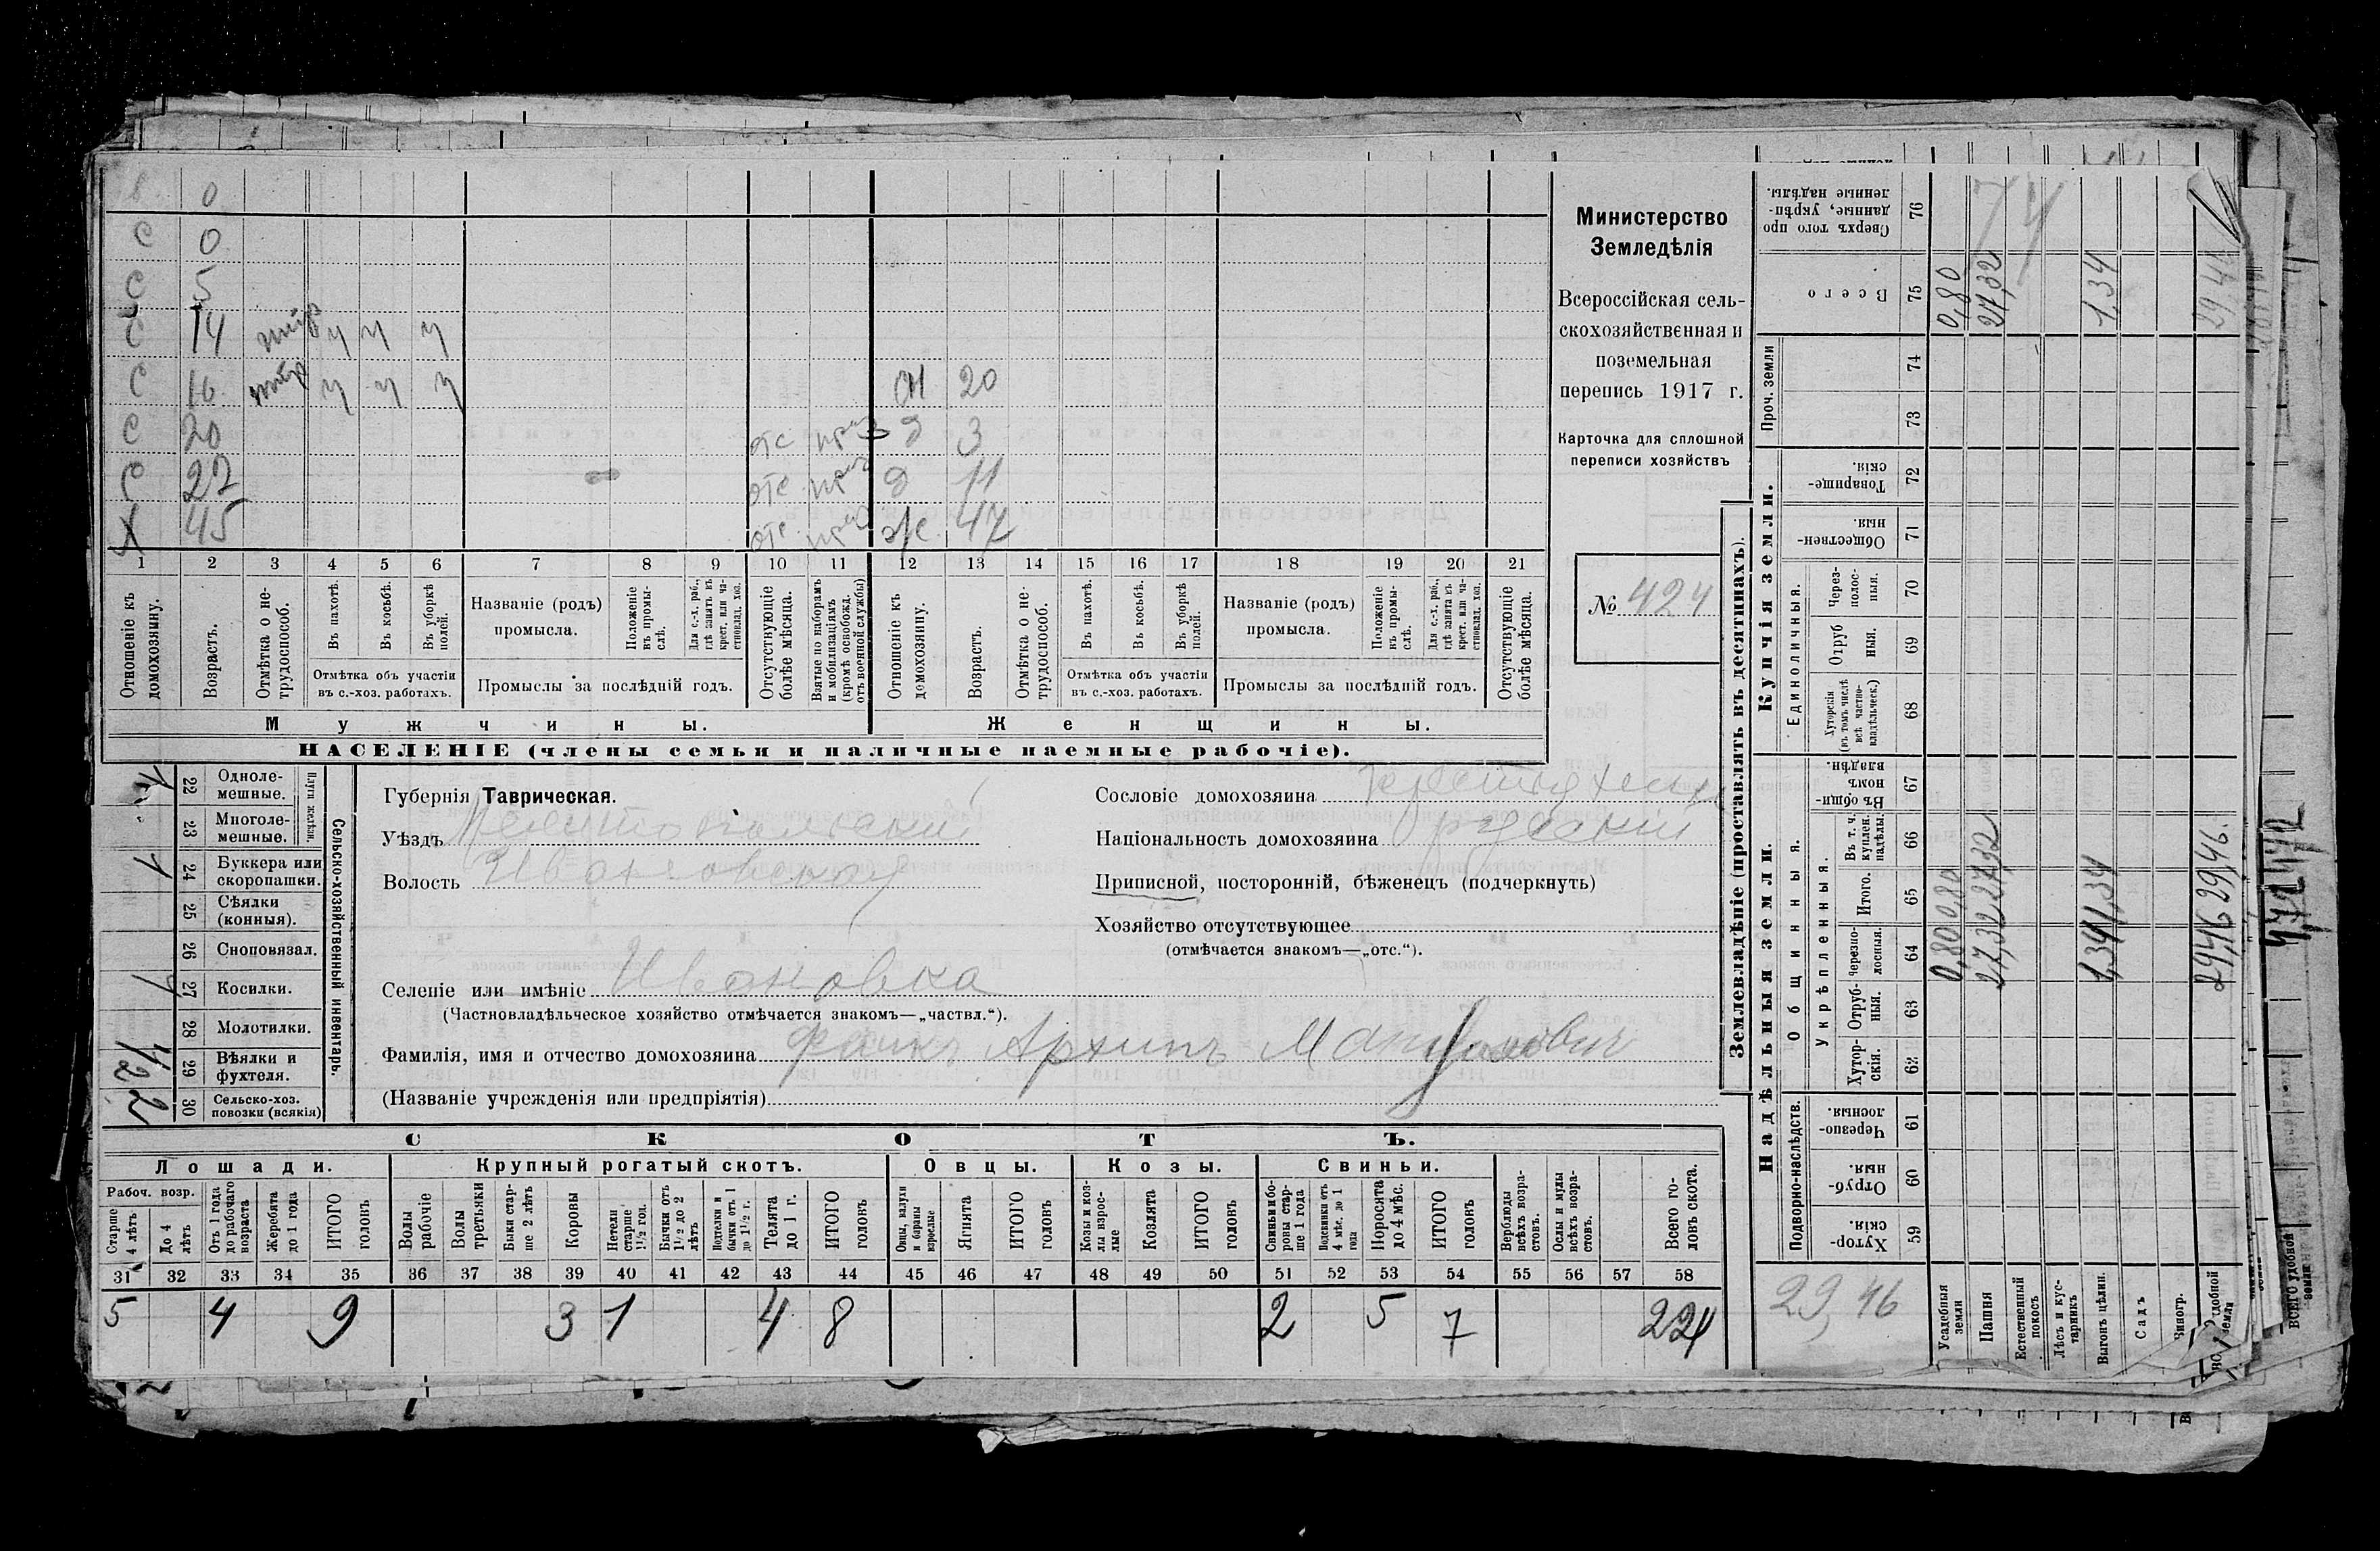 в. 0
С 0
С 5
С 14 у у у
С 16 у у у сн 20
С 20 отс приз д 3
С 22 отс приз д 11
Х 45 отс приз ж. 47
1 2 3 4 5 6 7 8 9 10 11 12 13 14 15 16 17 18 19 20 21
Отношеніе къ домохозяину.
Возрастъ.
Отмѣтка о не-трудоспособ.
Въ пахотѣ.
Въ косьбѣ.
Въ уборкѣ полей.
Отмѣтка объ участіи
въ с.-хоз. работахъ.
Названіе (родъ)
промысла.
Положеніе въ промы-слѣ.
Для с.-х. раб., гдѣ занятъ въ крест. или ча-стновлад. хоз.
Промыслы за послѣдній годъ.
Отсутствующіе болѣе мѣсяца.
Взятые по наборамъ и мобилизаціямъ (кромѣ освобожд. отъ военной службы)
Отношеніе къ домохозяину.
Возрастъ.
Отмѣтка о не-трудоспособ.
Въ пахотѣ.
Въ косьбѣ.
Въ уборкѣ полей.
Отмѣтка объ участіи
въ с.-хоз. работахъ.
Названіе (родъ)
промысла.
Положеніе въ промы-слѣ.
Для с.-х. раб., гдѣ занята въ крест. или ча-стновлад. хоз.
Промыслы за послѣдній годъ.
Отсутствующіе болѣе мѣсяца.
Мужчины.
Женщины.
НАСЕЛЕНІЕ (члены семьи и наличные наемные рабочіе).
Министерство
Земледѣлія
Всероссійская сель-
скохозяйственная и
поземельная
перепись 1917 г.
Карточка для сплошной
переписи хозяйствъ
№ 424
Сельско-хозяйственный инвентарь.
Плуги желѣзн.
1 22 Одноле-мешные.
23 Многоле-мешные.
1 24 Буккера или скоропашки.
25 Сѣялки (конныя).
26 Сноповязал.
1 27 Косилки.
28 Молотилки.
29 Вѣялки и фухтеля.
2 30 Сельско-хоз. повозки (всякія)
Губернія Таврическая.
Уѣздъ Мелитопольскій
Волость Ивановская
Селеніе или имѣніе Ивановка
(Частновладѣльческое хозяйство отмѣчается знакомъ—„частвл.“).
Фамилія, имя и отчество домохозяина Архипъ
(Названіе учрежденія или предпріятія)
Сословіе домохозяина
Національность домохозяина русскій
Приписной, посторонній, бѣженецъ (подчеркнуть)
Хозяйство отсутствующее
(отмѣчается знакомъ—„отс.“).
СКОТЪ.
Лошади.
Крупный рогатый скотъ.
Овцы.
Козы.
Свиньи.
Рабоч. возр.
Старше 4 лѣтъ
До 4 лѣтъ
Отъ 1 года до рабочаго возраста
Жеребята до 1 года
ИТОГО головъ
Волы рабочіе
Волы третьяки
Быки стар-ше 2 лѣтъ
Коровы
Нетели старше 1 1/2 год.
Бычки отъ 1 1/2 до 2 лѣтъ
Подтелки и бычки отъ 1 до 1 1/2 г.
Телята до 1 г.
ИТОГО головъ
Овцы, валухи и бараны взрослые
Ягнята
ИТОГО головъ
Козы и коз-лы взрос-лые
Козлята
ИТОГО головъ
Свиньи и бо-ровы стар-ше 1 года
Подсвинки отъ 4 мѣс. до 1 года
Поросята до 4 мѣс.
ИТОГО головъ
Верблюды всѣхъ возра-стовъ.
Ослы и мулы всѣхъ возра-стовъ.
Всего го-ловъ скота.
31 32 33 34 35 36 37 38 39 40 41 42 43 44 45 46 47 48 49 50 51 52 53 54 55 56 57 58
5 4 9 3 1 4 8 2 5 7 24
Землевладѣніе (проставлять въ десятинахъ).
Надѣльныя земли.
Купчія земли.
Проч. земли
Подворно-наслѣдств.
Общинныя.
Укрѣпленныя.
Единоличныя.
Сверхъ того про-данные, укрѣп-ленные надѣлы. 76
Всего 75
74
73
Товарище-скія. 72
Обществен-ныя. 71
Через-полос-ныя. 70
Отруб-ныя. 69
Хуторскія (въ томъ числѣ всѣ частно-владѣльческ.) 68
Въ общин-номъ владѣн. 67
Въ т. ч. куплен. надѣлы. 66
Итого. 65
Черезпо-лосныя. 64
Отруб-ныя. 63
Хутор-скія. 62
Черезпо-лосныя. 61
Отруб-ныя. 60
Хутор-скія. 59
29,46
Усадебныя земли 0,80 0,80 0,80
Пашня 27,32 27,32 27,32
Естественный покосъ
Лѣсъ и кус-тарникъ
Выгонъ цѣлин. 1,34 1,34 1,34
Садъ
Виногр.
29,46 29,46.